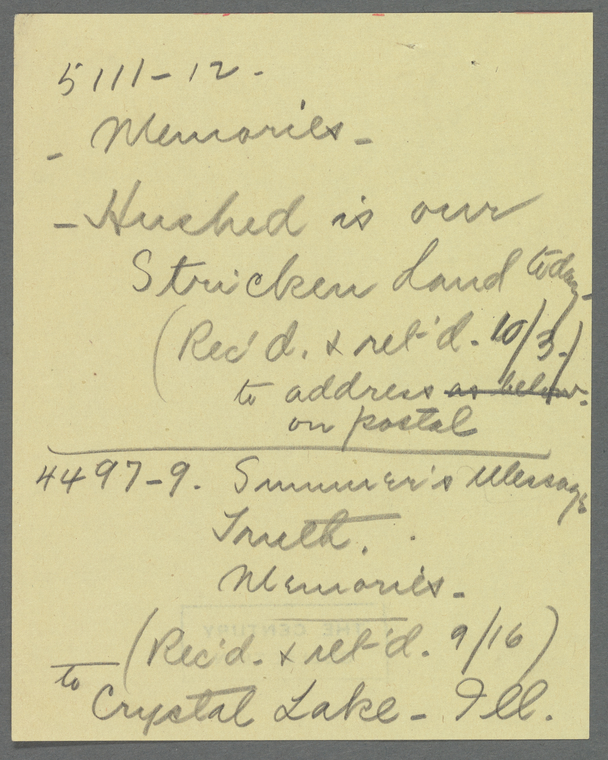 5111-12.
- Memories -
- Hushed is our
Stricken land today -
(Rec'd. & ret'd. 10/3.)
to address ~~as below~~.
on postal
4497-9. Summer's Message
Truth.
Memories -
(Rec'd. & ret'd. 9/16)
to Crystal Lake - Ill.
THE CENTURY